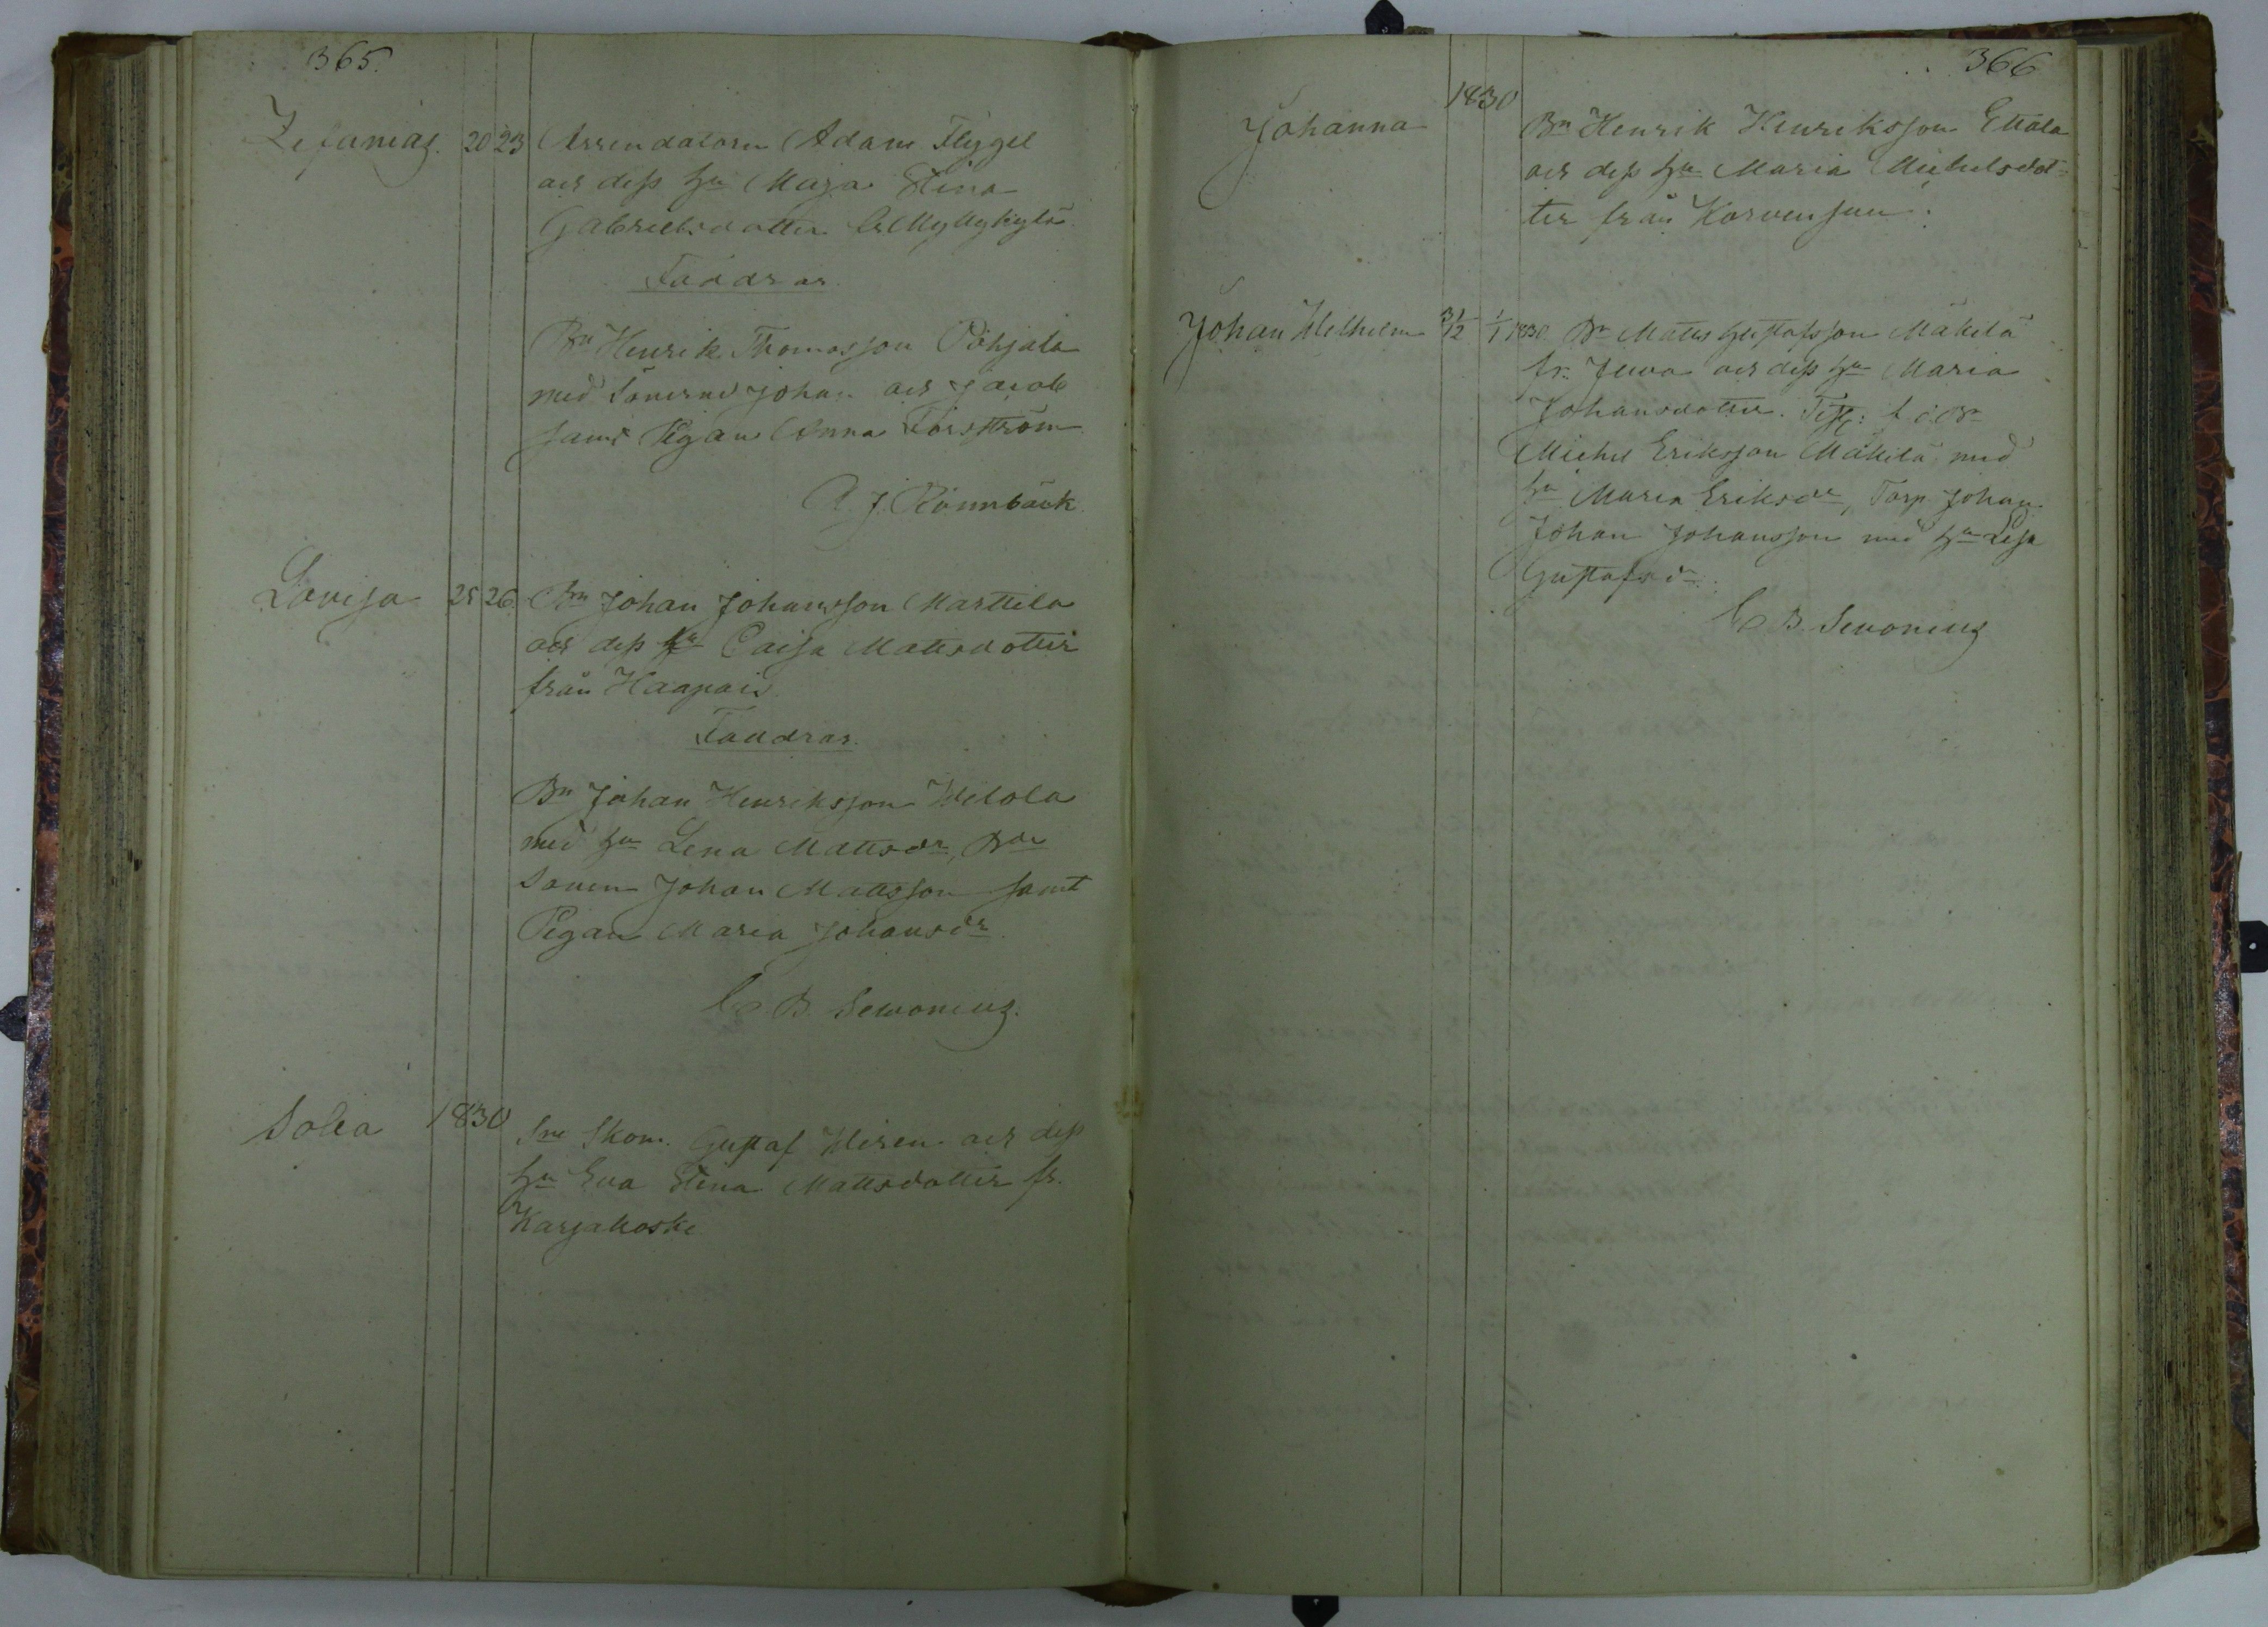 365.
Zefanias. 20 23 Arrendatorn Adam Flygel
och dess hu Maja Stina
Gabrielsdotter fr Myllykylä
Faddrar.
Bn Henrik Thomasson Pohjala
med Sönerne Johan och Jacob
samt Pigan Anna Forsström
A. J. Rönnbäck.
Lovisa 25 26. Bn Johan Johansson Marttila
och dess hu Caisa Mattsdotter
från Haapois.
Faddrar.
Bn Johan Henriksson Uutola
med hu Lena Mattsdr, Bde
Sonen Johan Mattsson samt
Pigan Maria Johansdr.
C. B. Sevonius.
Sofia 1830 Sne Skom. Gustaf Wiren och dess
hu Eva Stina Mattsdotter fr.
Karjakoski
366
1830
Johanna Bn Henrik Henriksson Ettala
och dess hu Maria Michelsdot-
ter från Korvensuu.
Johan Wilhelm 31/12 1/1 1830. Bn Matts Gustafsson Mäkilä
fr. Juva och dess hu Maria
Johansdotter. Test:
Michel Eriksson Mäkilä med
hu Maria Eriksdr, Torp Johan
Johan Johansson med hu Lisa
Gustafsdr.
C B. Sevonius